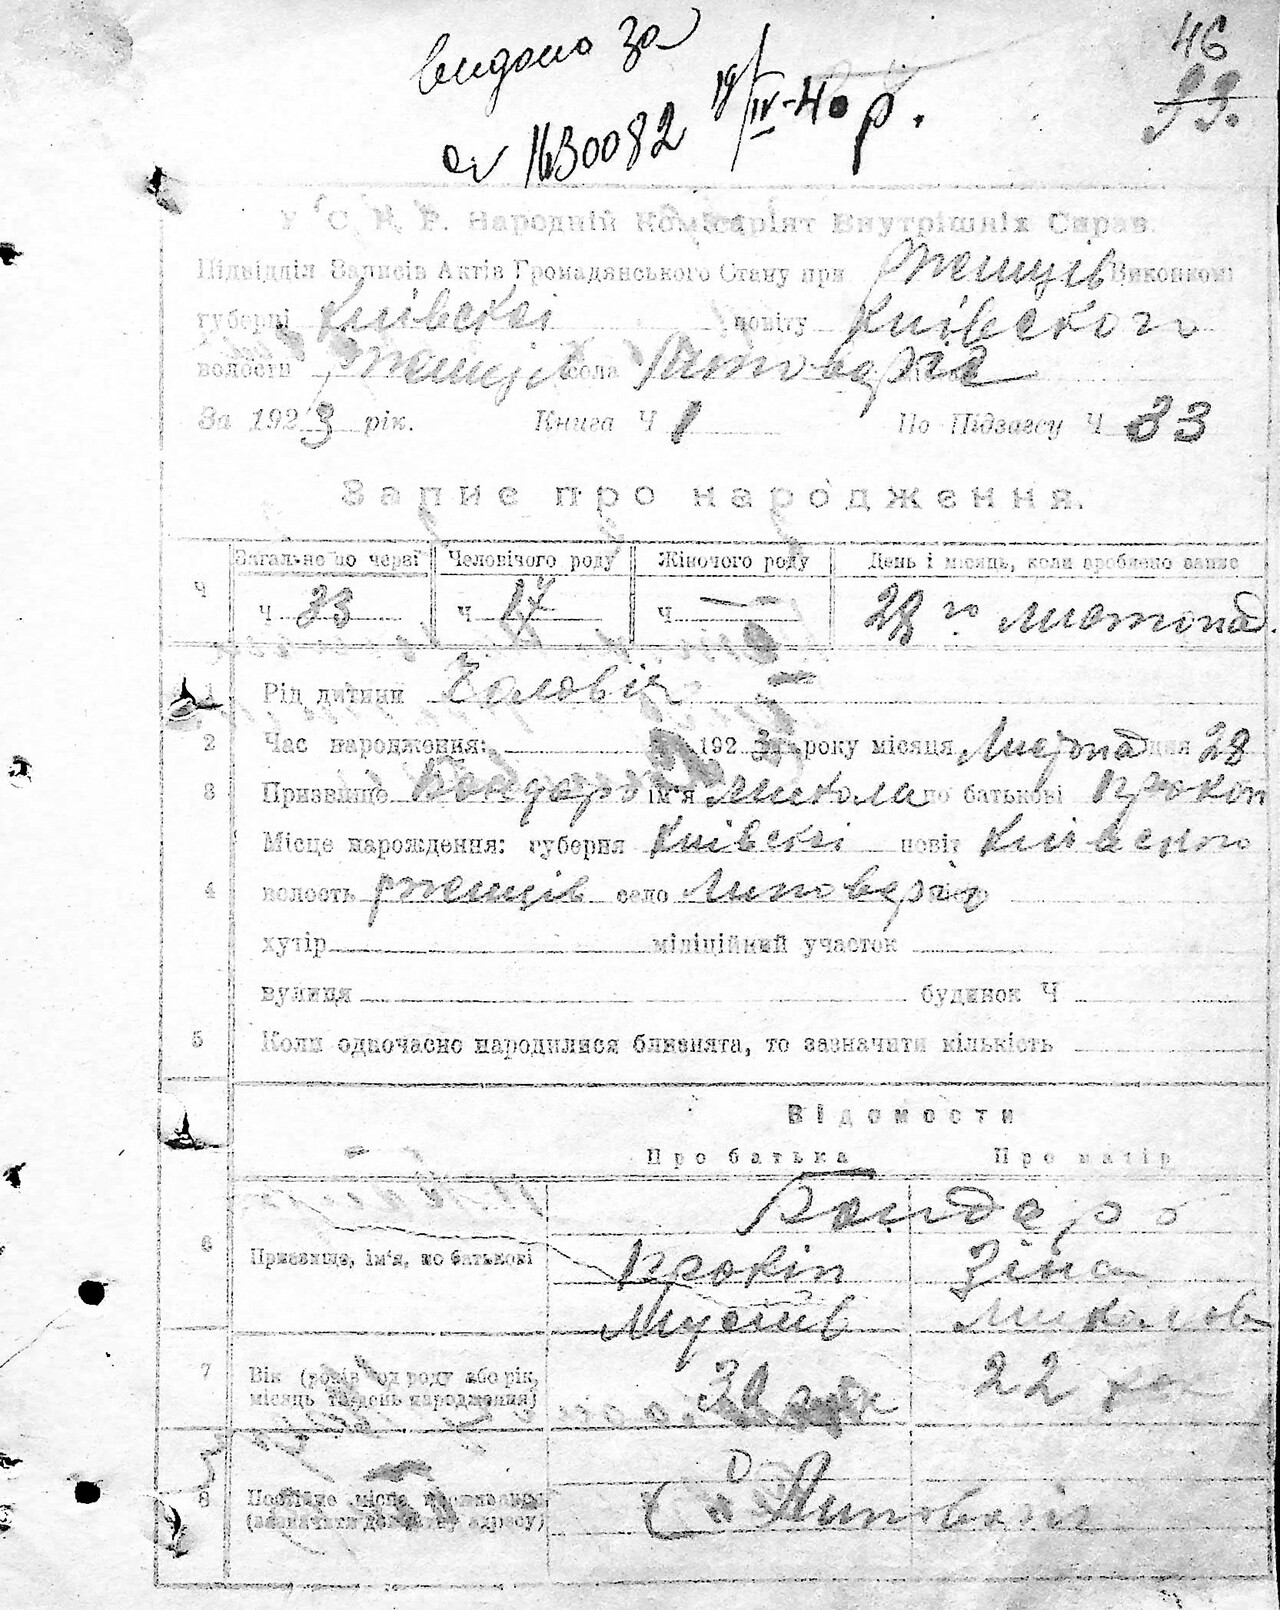 видано за
№ 1630082 19/IV-40 р.
46
33.
У. С. Р. Р. Народній Комісаріят Внутрішніх Справ.
Підвідділ Записів Актів Громадянського Стану при Ржищів Виконкомі
губерні Київскої повіту Київского
волости Ржищів села Липовер
За 1923 рік. Книга Ч 1 По Підзагсу Ч 33
Запис про народження.
Ч
Загальне по черзі Человічого роду Жіночого роду День і місяць, коли зроблено запис
Ч 33 Ч 17 Ч — 28 го листопад
1 Рід дитини Чоловік
2 Час народження: 1923 року місяця дня 28
3 Призвище Бондар ім'я Микола по батькові Прокоп
Місце народження: губерня Київскої повіт Київского
4 волость Ржищів село Липовер
хутір міліційний участок
вулиця будинок Ч
5 Коли одночасно народилися близнята, то зазначити кількість
Відомости
Про батька Про матір
Бондар
6 Призвище, ім'я, по батькові Прокіп Зіна
Мусіїв Миколов
7 Вік (років од роду або рік, місяць та день народження) 22
8 Постійне місце проживання (зазначити докладну адресу)